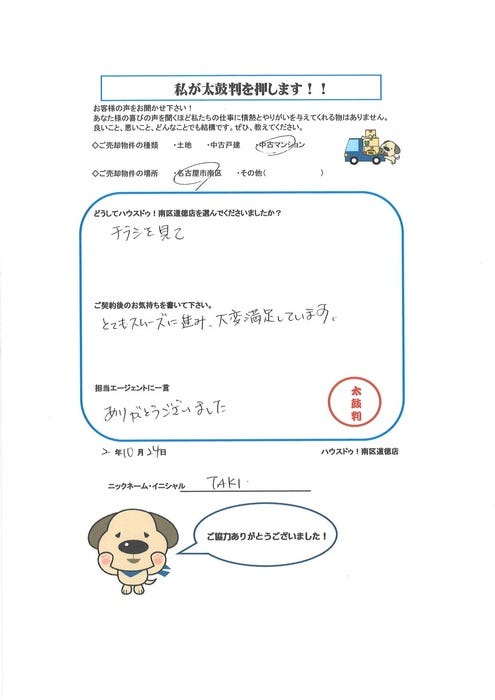 私が太鼓判を押します！！
お客様の声をお聞かせ下さい！
あなた様の喜びの声を聞くほど私たちの仕事に情熱とやりがいを与えてくれる物はありません。
良いこと、悪いこと、どんなことでも結構です。ぜひ、教えてください。
◇ご売却物件の種類　・土地　・中古戸建　・中古マンション
◇ご売却物件の場所　・名古屋市南区　・その他（　　　　　）
どうしてハウスドゥ！南区道徳店を選んでくださいましたか？
チラシを見て
ご契約後のお気持ちを書いて下さい。
とてもスムーズに進み、大変満足しています。
担当エージェントに一言
ありがとうございました
太鼓判
2 年 10 月 24 日
ハウスドゥ！南区道徳店
ニックネーム・イニシャル　TAKI
ご協力ありがとうございました！